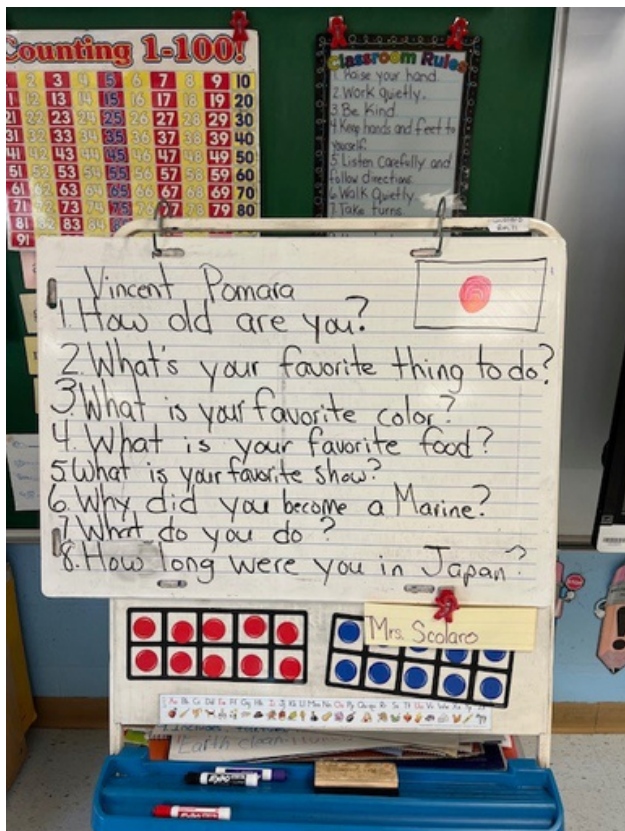 Counting 1-100!
2 3 4 5 6 7 8 9 10
1 12 13 14 15 16 17 18 19 20
21 22 23 24 25 26 27 28 29 30
31 32 33 34 35 36 37 38 39 40
41 42 43 44 45 46 47 48 49 50
51 52 53 54 55 56 57 58 59 60
61 62 63 64 65 66 67 68 69 70
71 72 73 74 75 76 77 78 79 80
81 82 83 84
91
Classroom Rules
1. Raise your hand.
2. Work quietly.
3. Be Kind.
4. Keep hands and feet to
yourself.
5. Listen carefully and
follow directions.
6. Walk Quietly
7. Take turns
Vincent Pomara
1. How old are you?
2. What's your favorite thing to do?
3. What is your favorite color?
4. What is your favorite food?
5 What is your favorite show?
6. Why did you become a Marine?
7. What do you do?
8. How long were you in Japan?
Mrs. Scolaro
Aa Bb Cc Dd Ee Ff Gg Hh Ii Jj Kk Ll Mm Nn Oo Pp Qq Rr Ss Tt Uu Vv Ww Xx Yy Zz
EXPO
EXPO